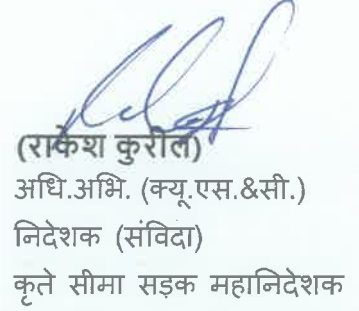 (राकेश कुरील)
अधि.अभि. (क्यू.एस.&सी.)
निदेशक (संविदा)
कृते सीमा सड़क महानिदेशक